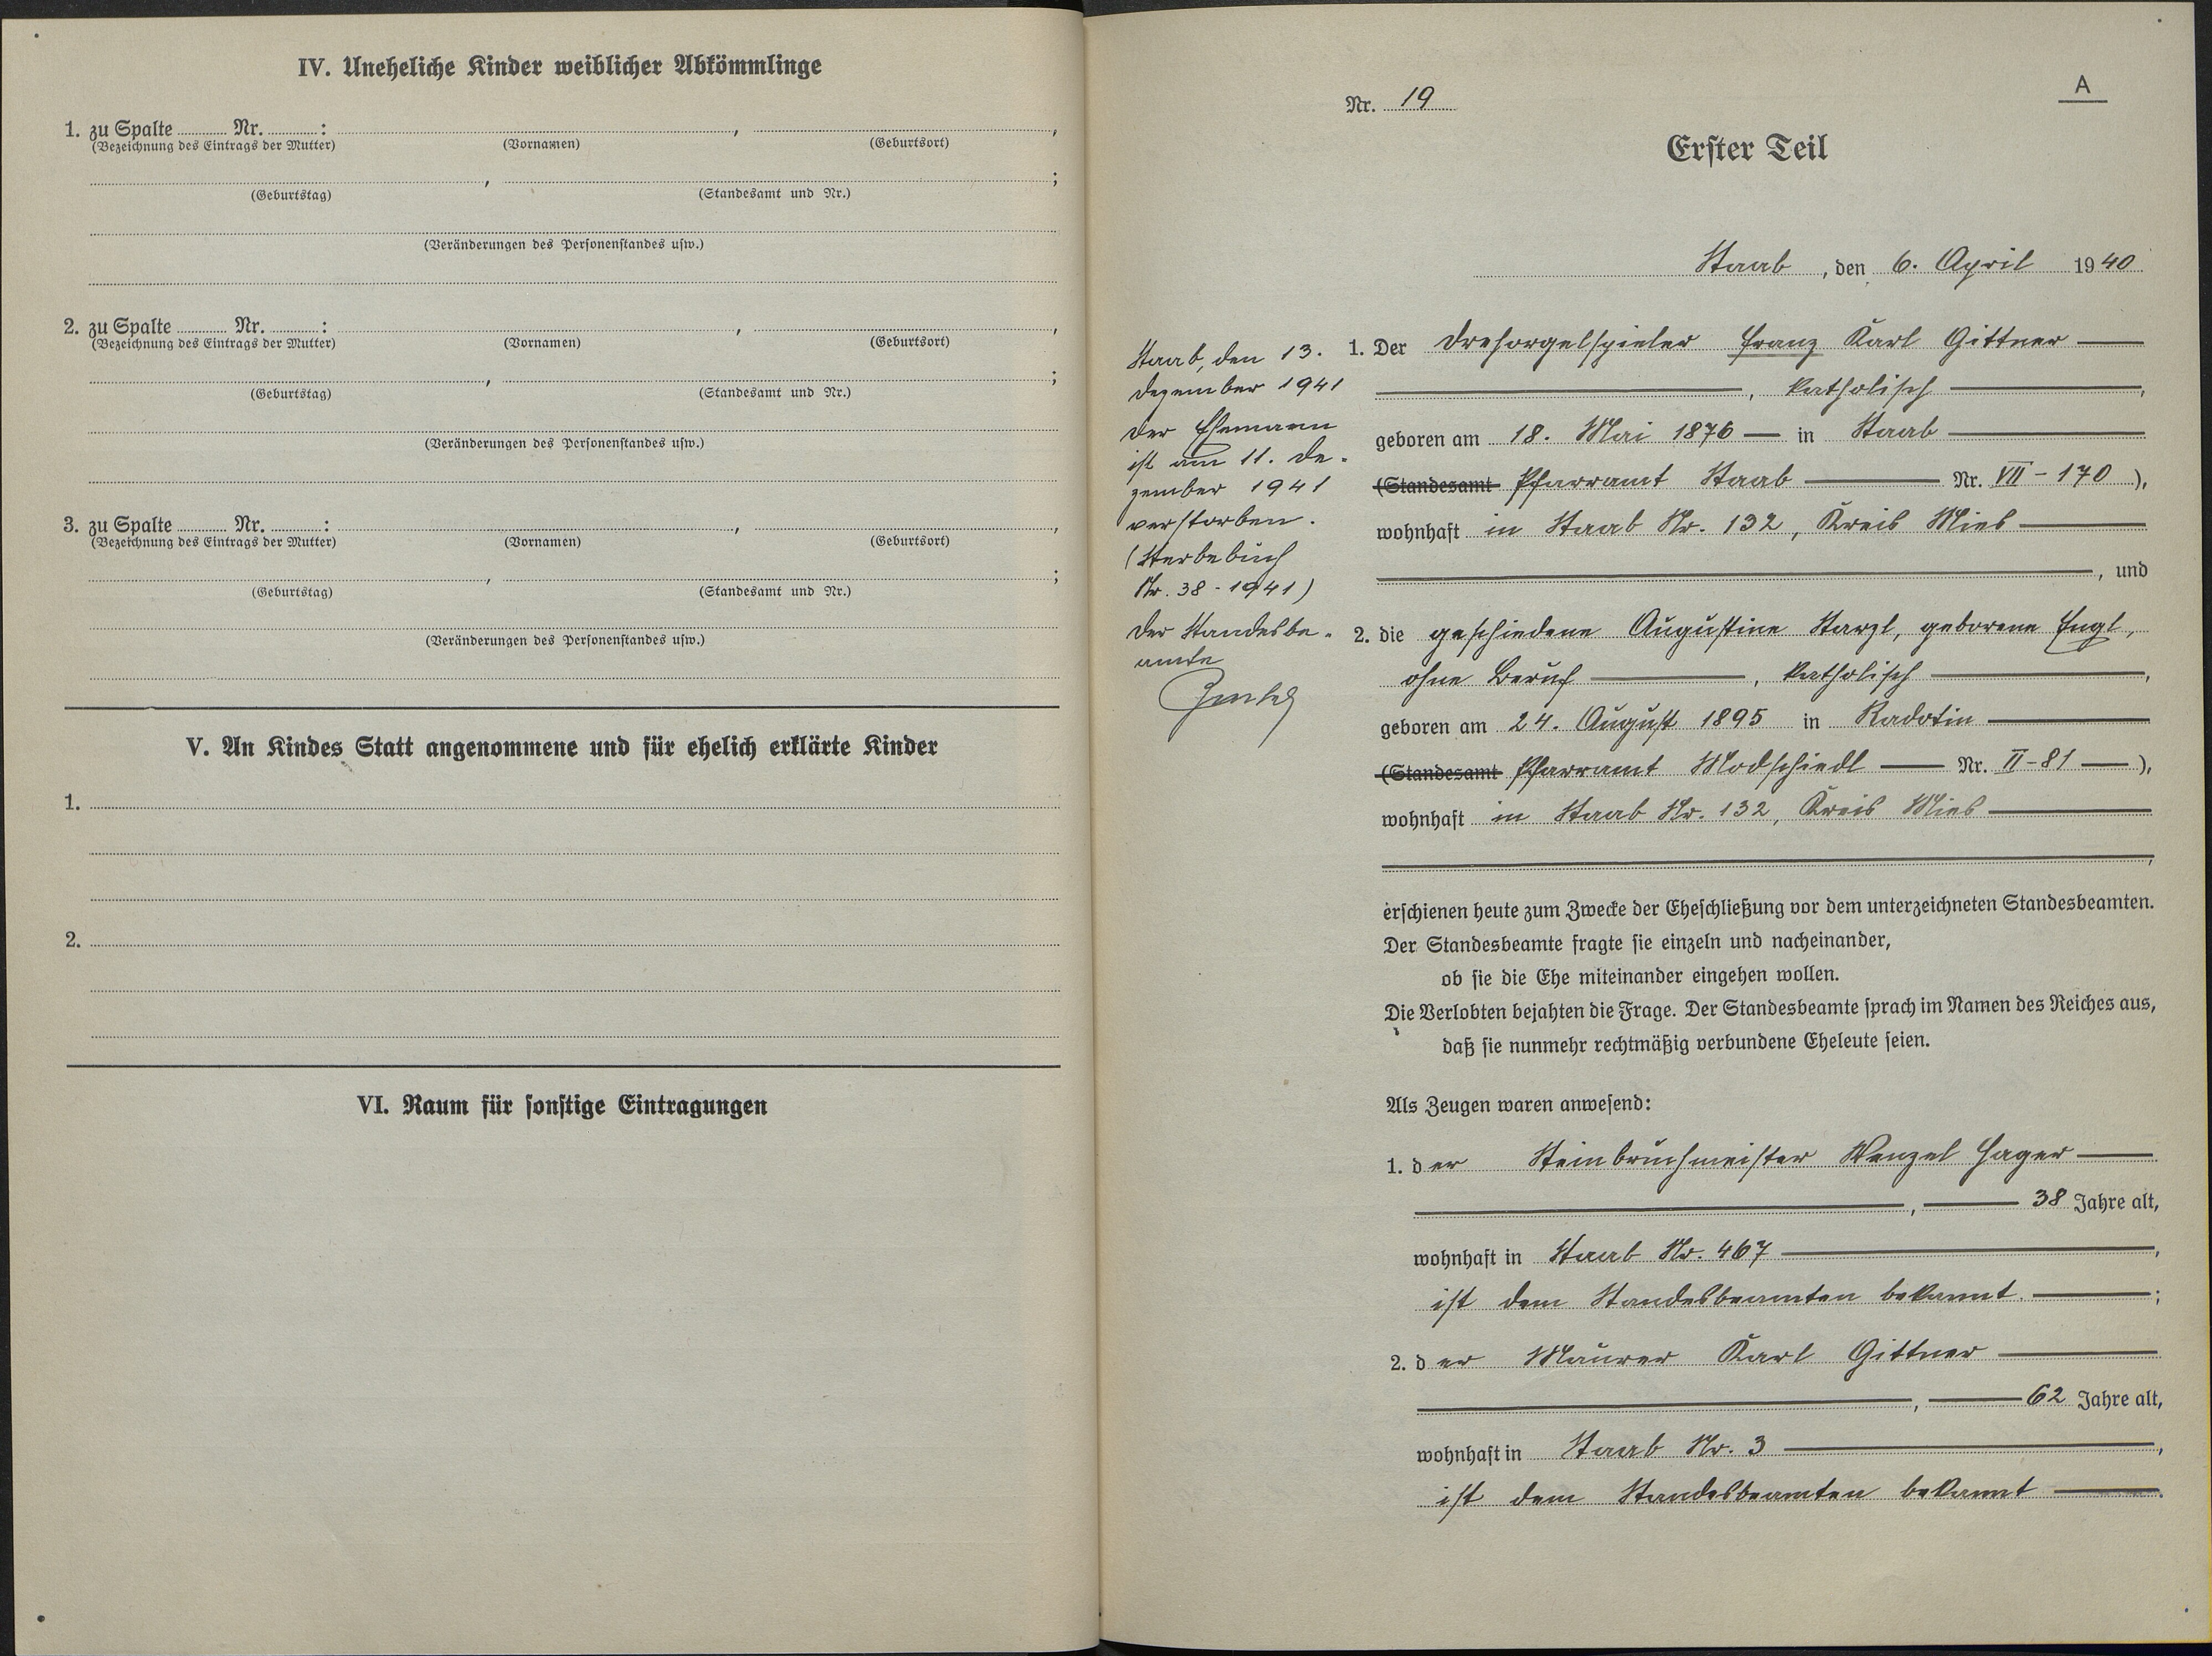 IV. Uneheliche Kinder weiblicher Abkömmlinge
1. zu Spalte ........ Nr. ........ : ........ , ........ ,
(Bezeichnung des Eintrags der Mutter) (Vornamen) (Geburtsort)
........ , ........ ;
(Geburtstag) (Standesamt und Nr.)
(Veränderungen des Personenstandes usw.)
2. zu Spalte ........ Nr. ........ : ........ , ........ ,
(Bezeichnung des Eintrags der Mutter) (Vornamen) (Geburtsort)
........ , ........ ;
(Geburtstag) (Standesamt und Nr.)
(Veränderungen des Personenstandes usw.)
3. zu Spalte ........ Nr. ........ : ........ , ........ ,
(Bezeichnung des Eintrags der Mutter) (Vornamen) (Geburtsort)
........ , ........ ;
(Geburtstag) (Standesamt und Nr.)
(Veränderungen des Personenstandes usw.)
V. An Kindes Statt angenommene und für ehelich erklärte Kinder
1.
2.
VI. Raum für sonstige Eintragungen
A
Nr. 19
Erster Teil
Staab, den 6. April 1940
Staab, den 13.
Dezember 1941
Der Ehemann
ist am 11. De-
zember 1941
verstorben.
(Sterbebuch
Nr. 38-1941)
Der Standesbe-
amte
1. Der Drehorgelspieler Franz Karl Gittner
, katholisch ,
geboren am 18. Mai 1876 in Staab
(Standesamt Pfarramt Staab Nr. VII - 170 ),
wohnhaft in Staab Nr. 132, Kreis Mies
, und
2. die geschiedene Augustine Starzl, geborene Engl,
ohne Beruf , katholisch ,
geboren am 24. August 1895 in Radotin
(Standesamt Pfarramt Modschiedl Nr. II-81 ),
wohnhaft in Staab Nr. 132, Kreis Mies
,
erschienen heute zum Zwecke der Eheschließung vor dem unterzeichneten Standesbeamten.
Der Standesbeamte fragte sie einzeln und nacheinander,
ob sie die Ehe miteinander eingehen wollen.
Die Verlobten bejahten die Frage. Der Standesbeamte sprach im Namen des Reiches aus,
daß sie nunmehr rechtmäßig verbundene Eheleute seien.
Als Zeugen waren anwesend:
1. der Steinbruchmeister Wenzel Hager
, 38 Jahre alt,
wohnhaft in Staab Nr. 467 ,
ist dem Standesbeamten bekannt. ;
2. der Maurer Karl Gittner
, 62 Jahre alt,
wohnhaft in Staab Nr. 3 ,
ist dem Standesbeamten bekannt .